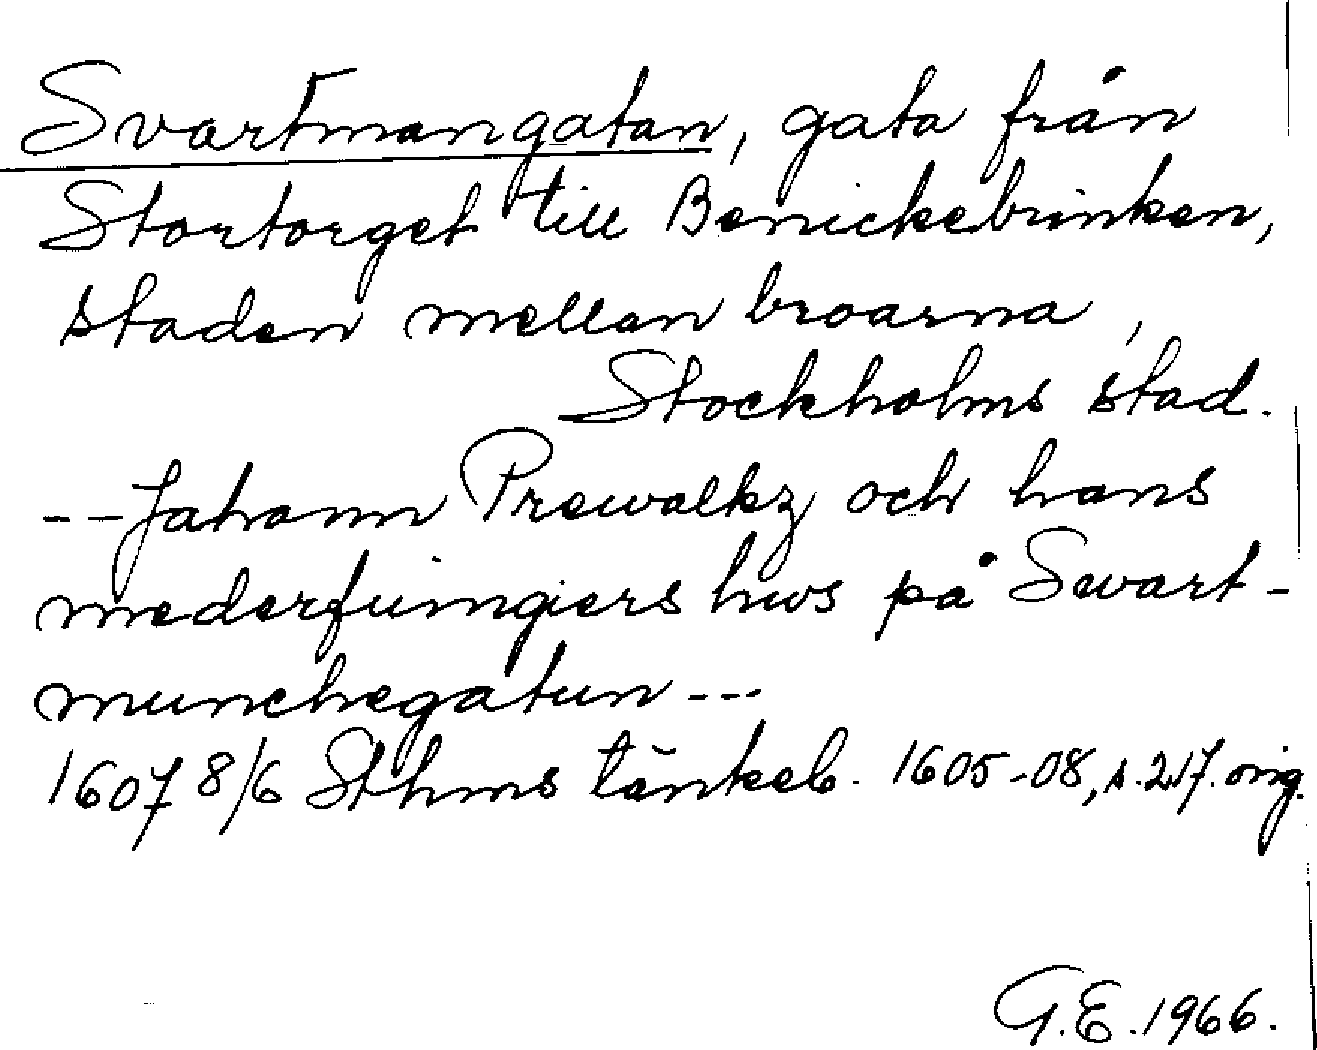 Svartmangatan, gata från
Stortorget till Benickebrinken,
staden mellan broarna,
Stockholms stad.
-- Johann Prewalkz och hans
mederfuingiers hws på Swart-
munchegatun ---
1607 8/6 Sthms tänkeb. 1605-08, s. 217. orig.
G.E. 1966.